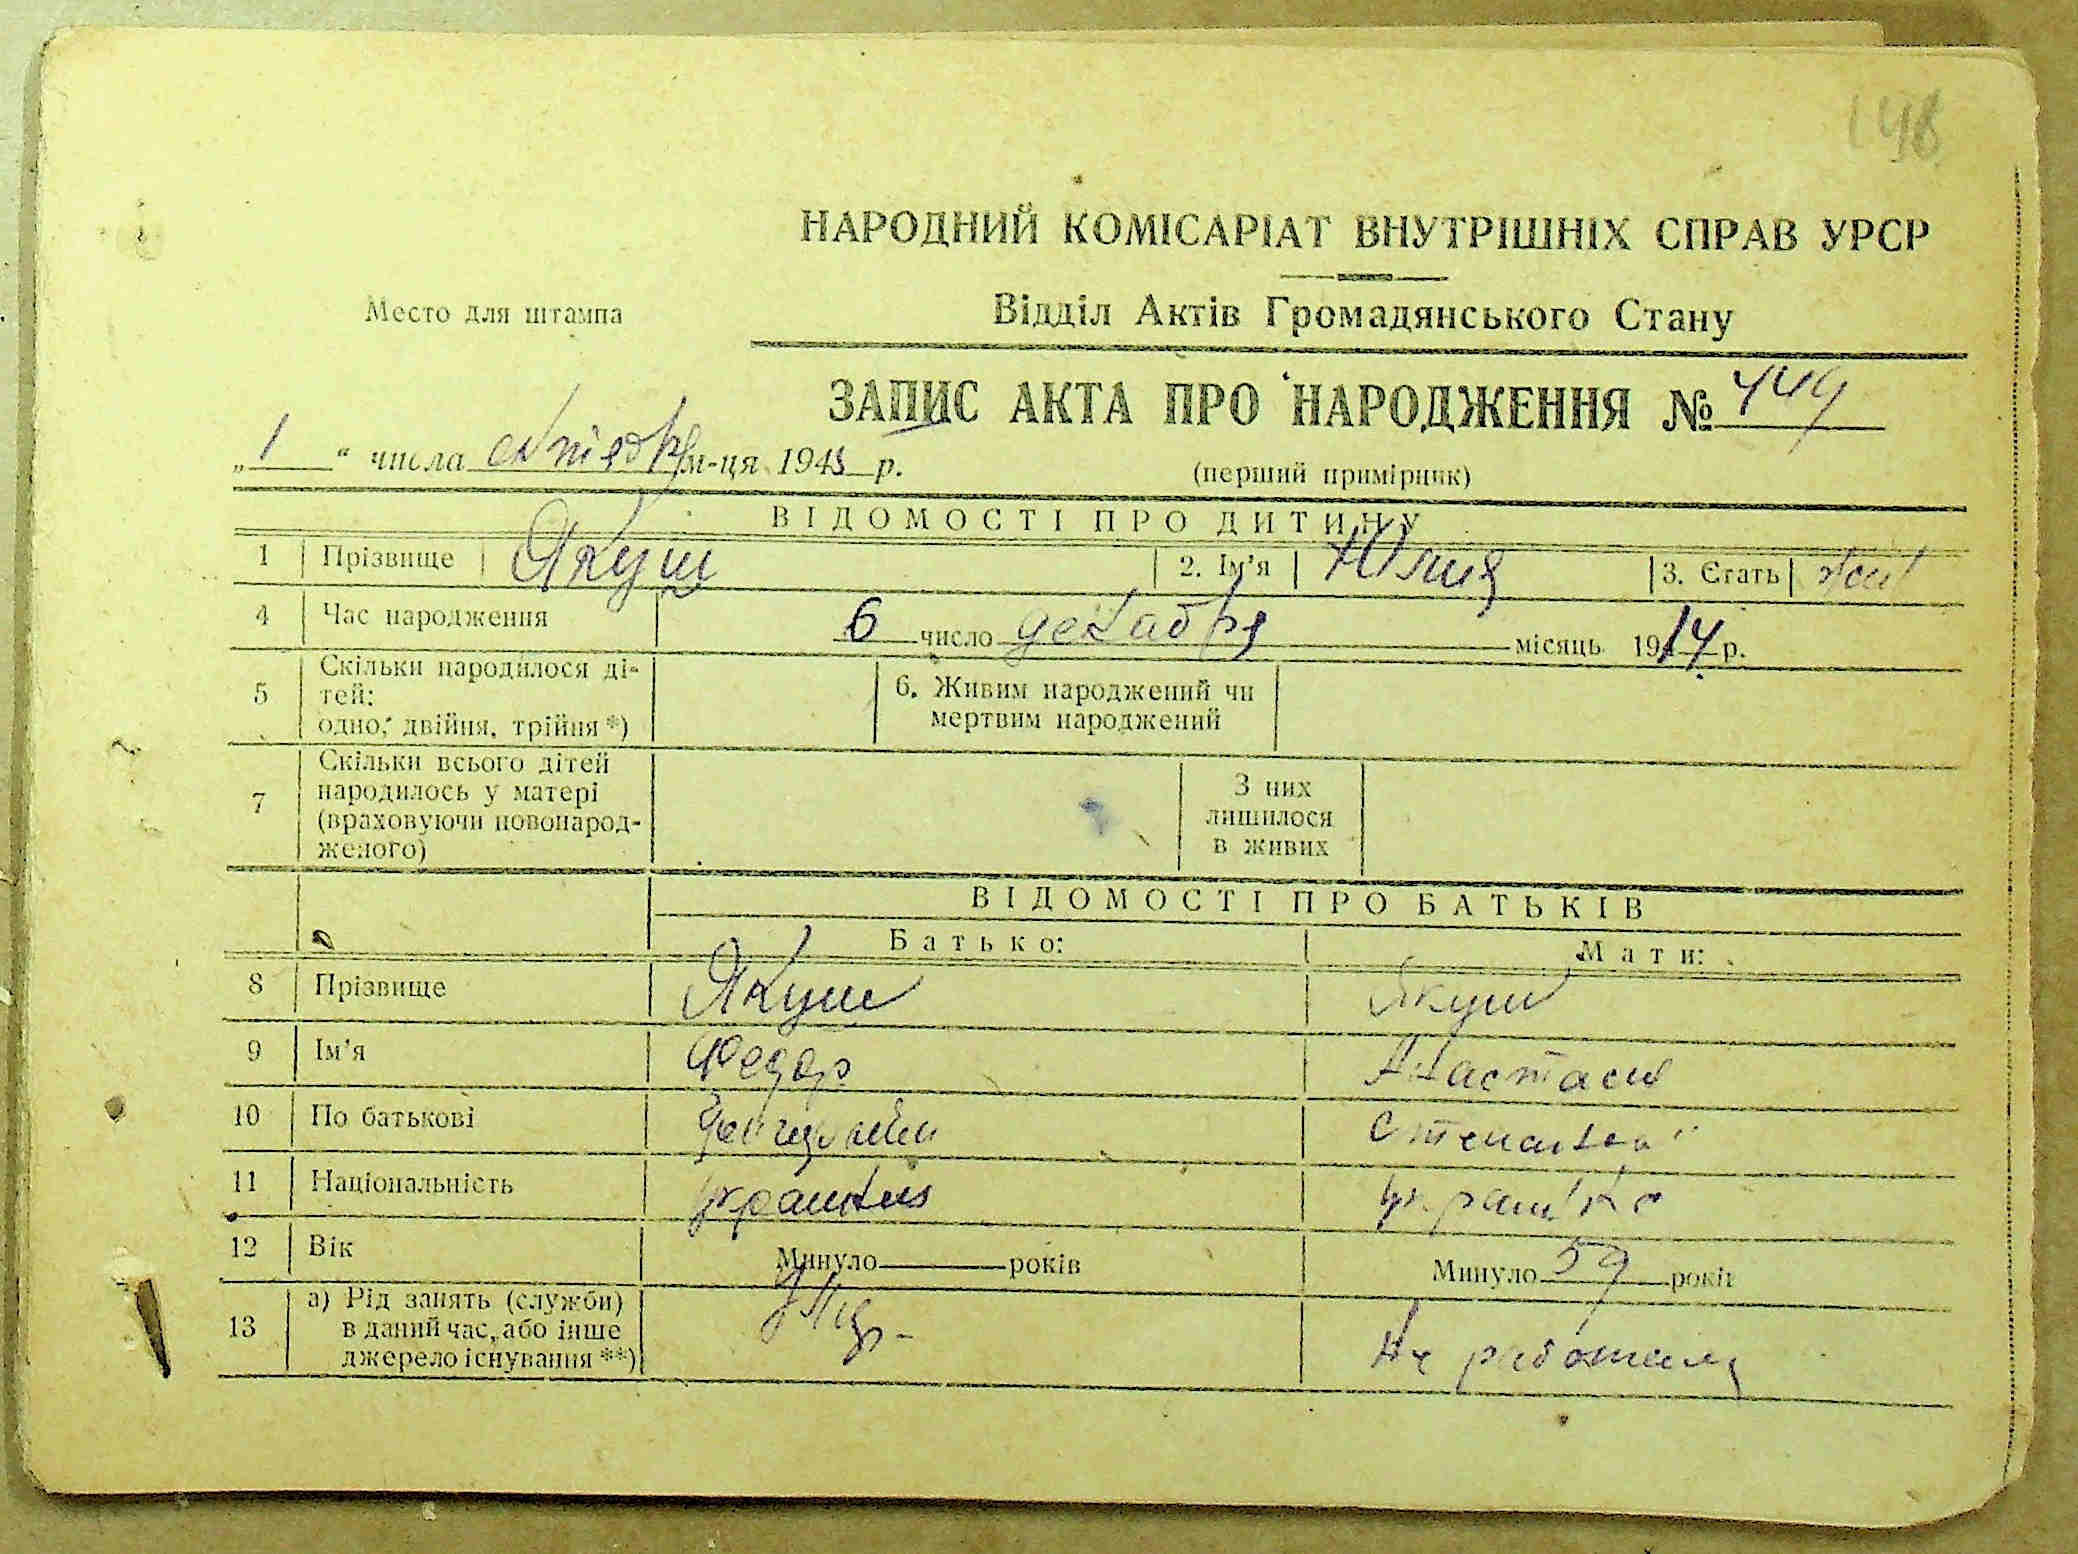 148
НАРОДНИЙ КОМІСАРІАТ ВНУТРІШНІХ СПРАВ УРСР
Место для штампа
Відділ Актів Громадянського Стану
ЗАПИС АКТА ПРО НАРОДЖЕННЯ № 449
„ 1 “ числа октября м-ця 1943 р.
(перший примірник)
ВІДОМОСТІ ПРО ДИТИНУ
1 Прізвище Якуш 2. Ім'я Юлия 3. Стать жен
4 Час народження 6 число декабря місяць 1914 р.
5 Скільки народилося ді-
тей:
одно, двійня, трійня *)
6. Живим народжений чи
мертвим народжений
7 Скільки всього дітей
народилось у матері
(враховуючи новонарод-
женого)
З них
лишилося
в живих
ВІДОМОСТІ ПРО БАТЬКІВ
Батько: Мати:
8 Прізвище Якуш Якуш
9 Ім'я Федор Анастасия
10 По батькові
11 Національність украинец украинка
12 Вік Минуло років Минуло 59 років
13 а) Рід занять (служби)
в даний час, або інше
джерело існування **)
Умер
Не работала